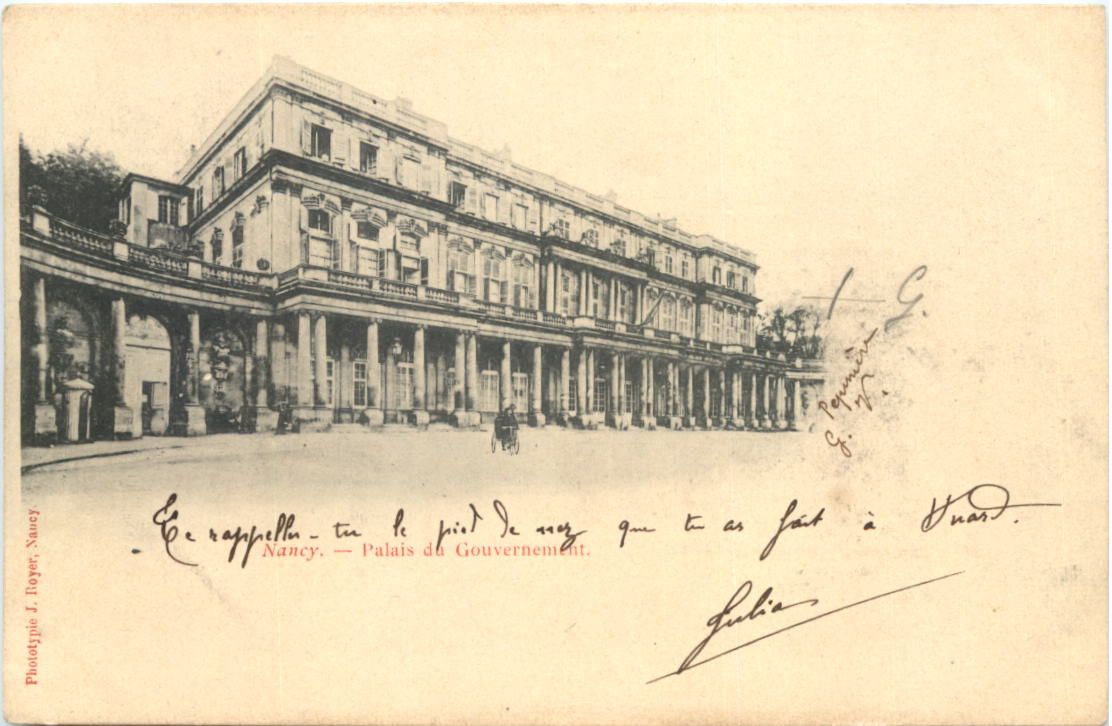 G.
Pepinière
G.
Te rappelles-tu le pied de nez que tu as fait à Huard.
Nancy. — Palais du Gouvernement.
Julia
Phototypie J. Royer, Nancy.